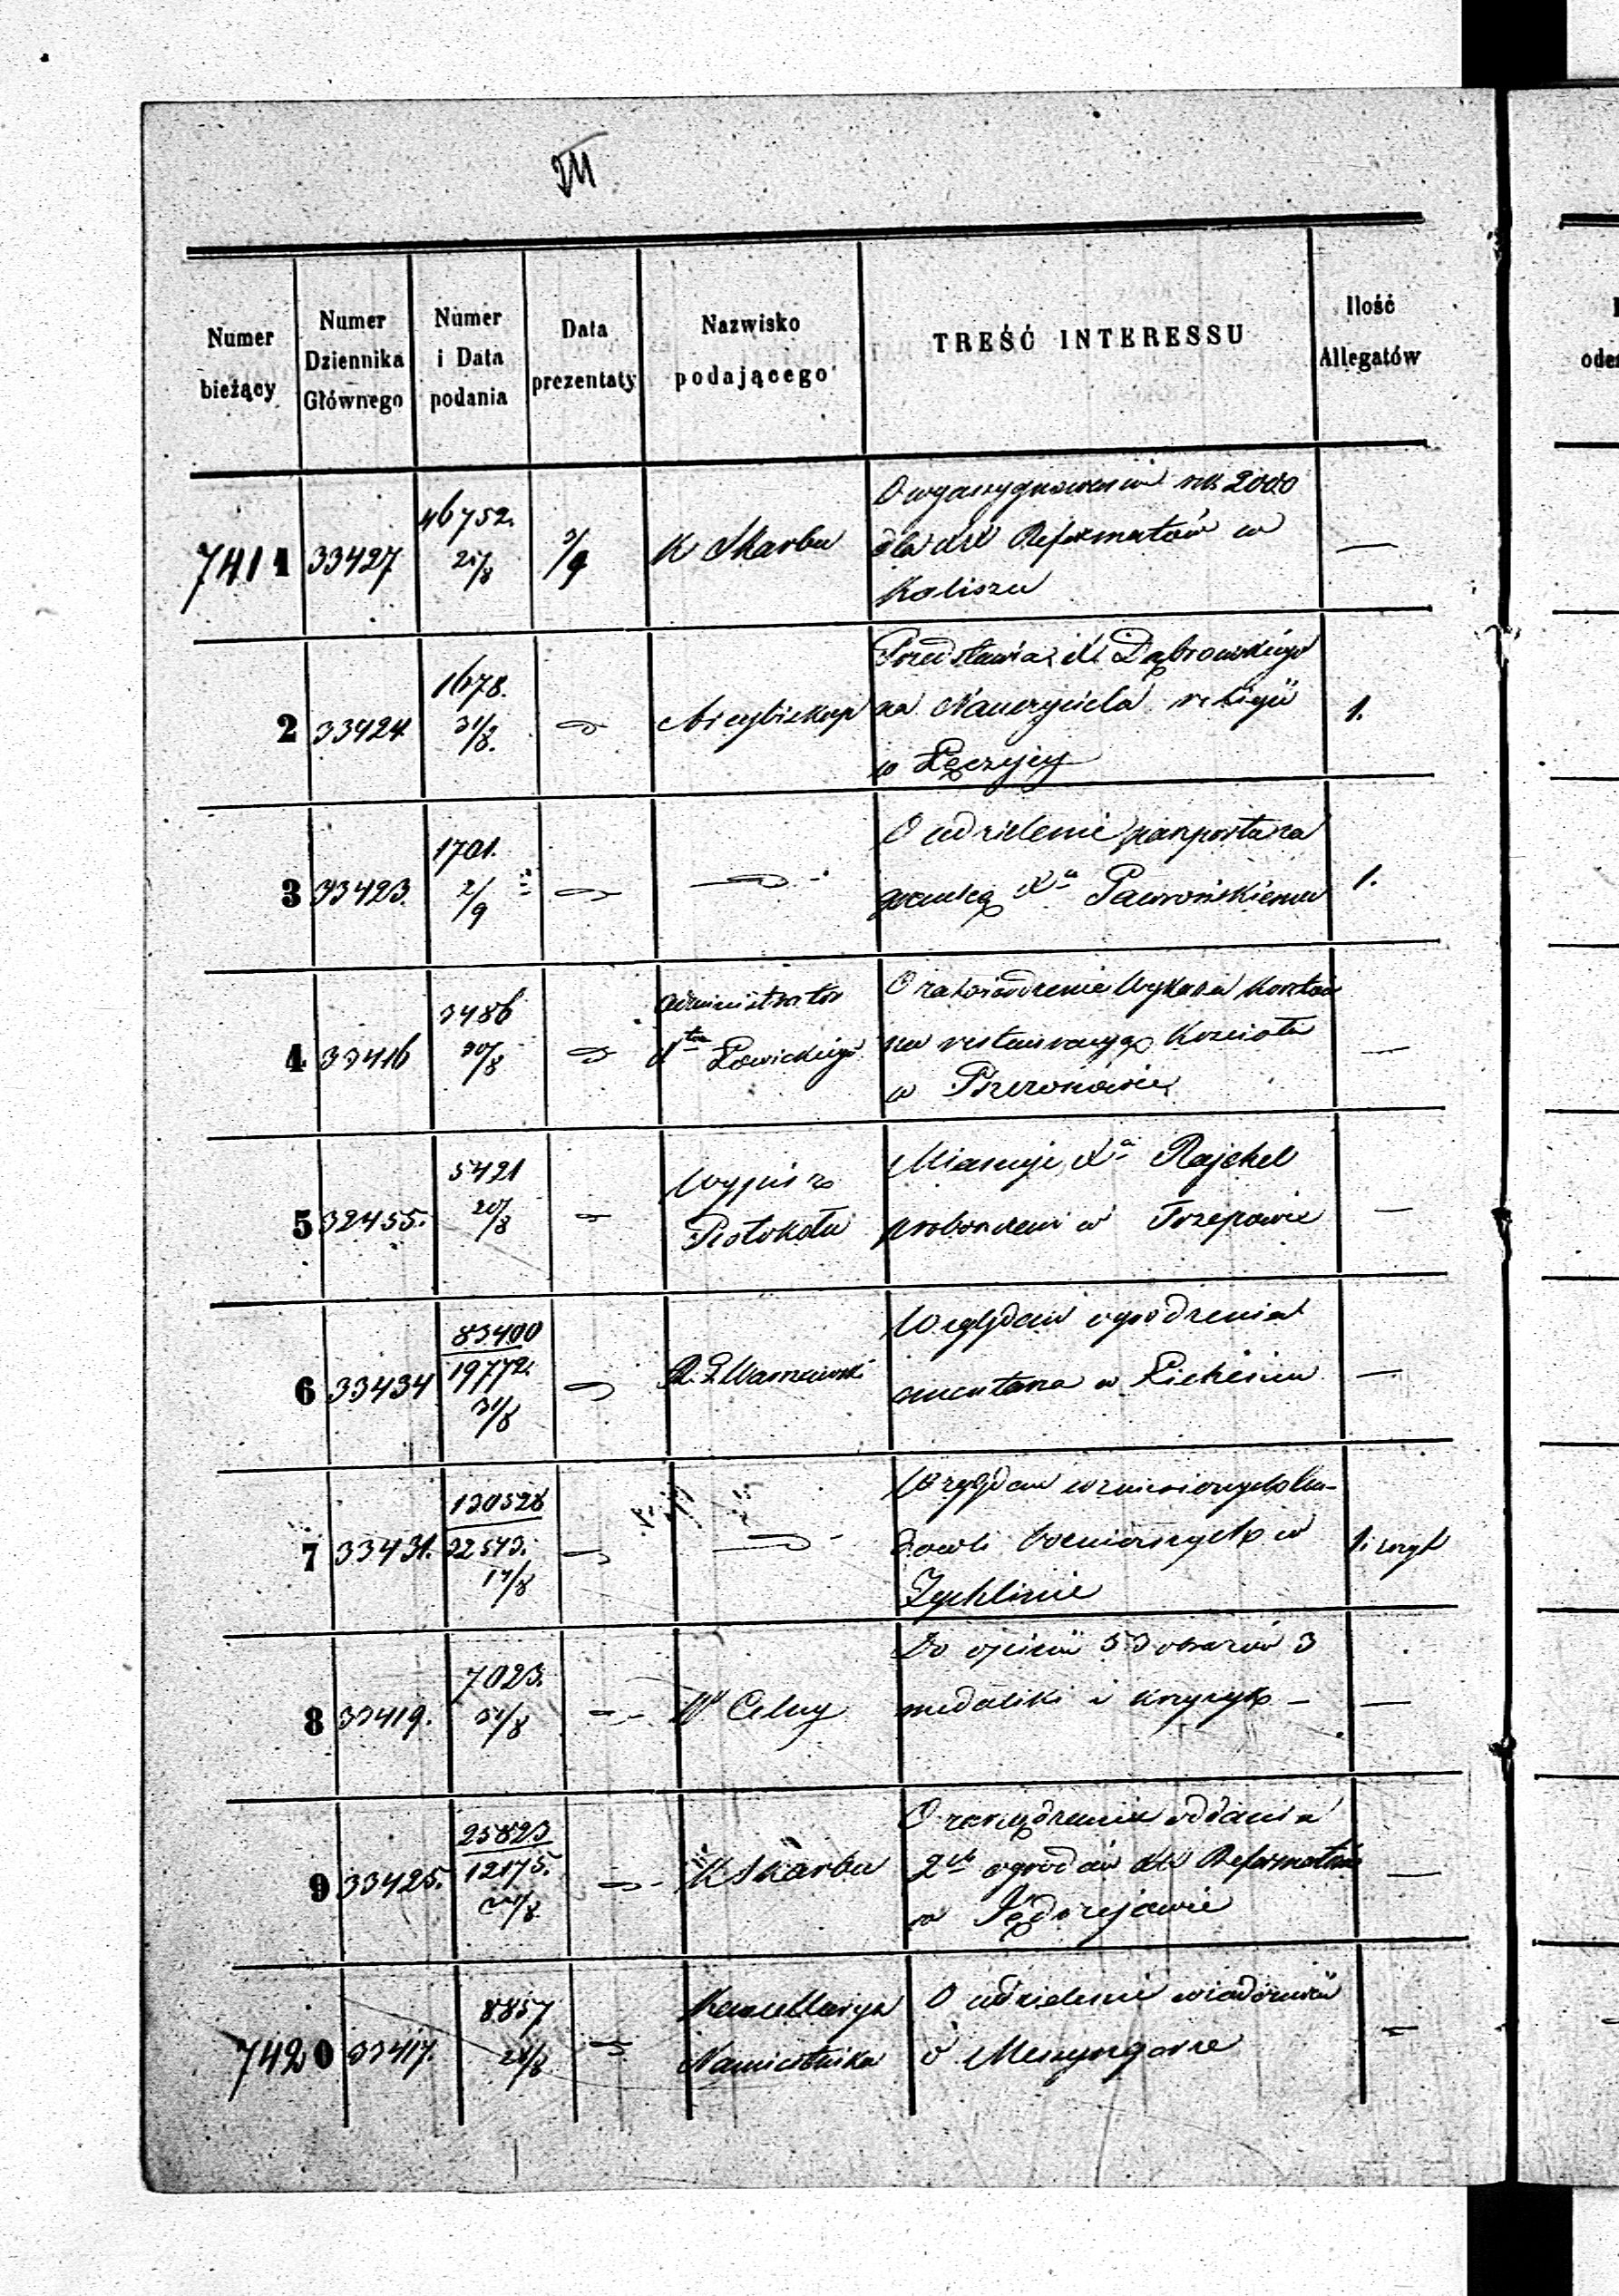 VII
Numer bieżący
Numer Dziennika Głównego
Numer i Data podania
Data prezentaty
Nazwisko podającego
TREŚĆ INTERESSU
Ilość Allegatów
7411 33427 46752. 3/9 K Skarbu
O wyassygnowanie rub 2000
dla XX Reformatów w
Kaliszu
—
2 33424 1678. 31/8. Arcybiskup
Przedstawia X Dąbrowskiego
na Nauczyciela religii
w Łęczycy
1.
3 33423. 1701. 2/9
O udzielenie paszportu za
granicę Xu Pawrońskiemu
1.
4 33416 3486 30/8 Administrator
Łowickiego
O zatwierdzenie Wykazu kosztów
na restauracyą Kościoła
w
—
5 32455. 5421 20/8 Wypis z
Protokółu
Mianuje Xa Rajchel
proboszczem w Trzepowie
—
6 33434 83400
19772. 31/8 R. G. Warszawski
Względem ogrodzenia
cmentarza w Licheniu
—
7 33431. 130528
32543. 17/8
Względem wzniesionych bu-
dowli w
Żychlinie
1.
8 33419. 7023. 31/8 Celny
Do opinii 53 obrazów 3
medaliki i krzyżyk —
—
9 33425. 25823
12175. K Skarbu
O zarządzenie oddania
2ch ogrodów XX Reformatom
w Jędrzejowie
—
7420 33417. 8857 28/8 Kancellarya
Namiestnika
O udzielenie wiadomości
o
—